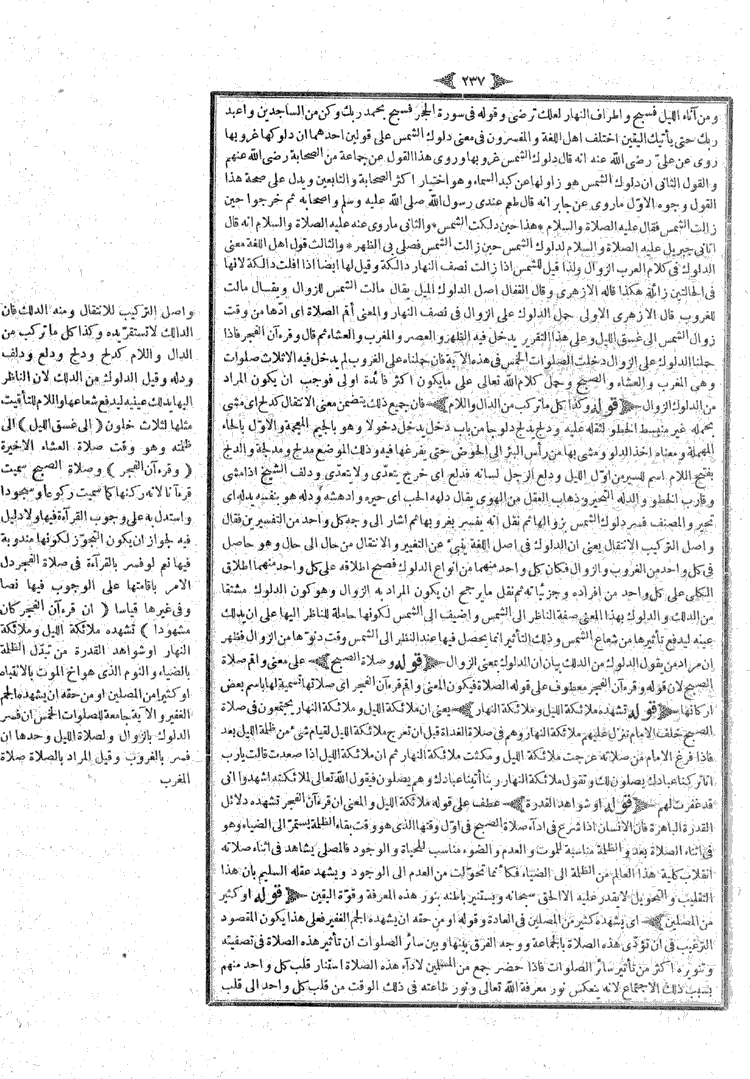 ٢٣٧
ومن آناء الليل فسبح واطراف النهار لعلك ترضى وقوله فى سورة الحجر فسبح بحمد ربك وكن من الساجدين واعبد
ربك حتى يأتيك اليقين اختلف اهل اللغة والمفسرون فى معنى دلوك الشمس على قولين احدهما ان دلوكها غروبها
روى عن على رضى الله عنه انه قال دلوك الشمس غروبها وروى هذا القول عن جماعة من الصحابة رضى الله عنهم
والقول الثانى ان دلوك الشمس هو زوالها عن كبد السماء وهو اختيار اكثر الصحابة والتابعين ويدل على صحة هذا
القول وجوه الاول ماروى عن جابر انه قال طعم عندى رسول الله صلى الله عليه وسلم واصحابه ثم خرجوا حين
زالت الشمس فقال عليه الصلاة والسلام * هذا حين دلكت الشمس * والثانى ماروى عنه عليه الصلاة والسلام انه قال
اتانى جبريل عليه الصلاة والسلام لدلوك الشمس حين زالت الشمس فصلى بى الظهر * والثالث قول اهل اللغة معنى
الدلوك فى كلام العرب الزوال ولذا قيل للشمس اذا زالت نصف النهار دالكة وقيل لها ايضا اذا افلت دالكة لانها
فى الحالتين زائلة هكذا قاله الازهرى وقال القفال اصل الدلوك الميل يقال مالت الشمس للزوال ويقال مالت
للغروب قال الازهرى الاولى حمل الدلوك على الزوال فى نصف النهار والمعنى أقم الصلاة اى ادها من وقت
زوال الشمس الى غسق الليل وعلى هذا التقرير يدخل فيه الظهر والعصر والمغرب والعشاء ثم قال وقرءآن الفجر فاذا
حملنا الدلوك على الزوال دخلت الصلوات الخمس فى هذه الآية فان حملناه على الغروب لم يدخل فيه الاثلاث صلوات
وهى المغرب والعشاء والصبح وحمل كلام الله تعالى على مايكون اكثر فائدة اولى فوجب ان يكون المراد
من الدلوك الزوال ﴿ قوله وكذا كل ما تركب من الدال واللام ﴾ فان جميع ذلك يتضمن معنى الانتقال كدلح اى مشى
بحمله غير منبسط الخطو لثقله عليه ودلج يدلج دلوجا من باب دخل يدخل دخولا وهو بالجيم المعجمة والاول بالحاء
المهملة ومعناه اخذ الدلو ومشى بها من رأس البئر الى الحوض حتى يفرغها فيه وذلك الموضع مدلج ومدلجة والدلج
بفتح اللام اسم للسير من اول الليل ودلع الرجل لسانه فدلع اى خرج يتعدى ولا يتعدى ودلف الشيخ اذا مشى
وقارب الخطو والدله التحير وذهاب العقل من الهوى يقال دلهه الحب اى حيره وادهشه ودله هو بنفسه يدله اى
تحير والمصنف فسر دلوك الشمس بزوالها ثم نقل انه يفسر بغروبها ثم اشار الى وجه كل واحد من التفسيرين فقال
واصل التركيب الانتقال يعنى ان الدلوك فى اصل اللغة ينبئ عن التغيير والانتقال من حال الى حال وهو حاصل
فى كل واحد من الغروب والزوال فكان كل واحد منهما من انواع الدلوك فصح اطلاقه على كل واحد منهما اطلاق
الكلى على كل واحد من افراده وجزئياته ثم نقل مايرجح ان يكون المراد به الزوال وهو كون الدلوك مشتقا
من الدلك والدلوك بهذا المعنى صفة الناظر الى الشمس واضيف الى الشمس لكونها حاملة للناظر اليها على ان يدلك
عينه ليدفع تأثيرها من شعاع الشمس وذلك التأثير انما يحصل فيها عند النظر الى الشمس وقت دنوها من الزوال فظهر
ان مراد من يقول الدلوك من الدلك بيان ان الدلوك بمعنى الزوال ﴿ قوله وصلاة الصبح ﴾ على معنى واقم صلاة
الصبح لان قوله وقرءآن الفجر معطوف على قوله الصلاة فيكون المعنى واقم قرءآن الفجر اى صلاتها تسمية لها باسم بعض
اركانها ﴿ قوله تشهده ملائكة الليل وملائكة النهار ﴾ يعنى ان ملائكة الليل وملائكة النهار يجتمعون فى صلاة
الصبح خلف الامام تنزل عليهم ملائكة النهار وهم فى صلاة الغداة قبل ان تعرج ملائكة الليل لقيام شئ من ظلمة الليل بعد
فاذا فرغ الامام من صلاته عرجت ملائكة الليل ومكثت ملائكة النهار ثم ان ملائكة الليل اذا صعدت قالت يارب
انا تركنا عبادك يصلون لك وتقول ملائكة النهار ربنا أتينا عبادك وهم يصلون فيقول الله تعالى لملائكته اشهدوا انى
قد غفرت لهم ﴿ قوله او شواهد القدرة ﴾ عطف على قوله ملائكة الليل والمعنى ان قرءآن الفجر تشهده دلائل
القدرة الباهرة فان الانسان اذا شرع فى اداء صلاة الصبح فى اول وقتها الذى هو وقت بقاء الظلمة يستمر الى الضياء وهو
فى اثناء الصلاة بعد والظلمة مناسبة للموت والعدم والضوء مناسب للحياة والوجود فالمصلى يشاهد فى اثناء صلاته
انقلاب كلية هذا العالم من الظلمة الى الضياء فكأنما تحولت من العدم الى الوجود ويشهد عقله السليم بان هذا
التقليب والتحويل لايقدر عليه الا الحق سبحانه ويستنير باطنه بنور هذه المعرفة وقوة اليقين ﴿ قوله او كثير
من المصلين ﴾ اى يشهده كثير من المصلين فى العادة وقوله او من حقه ان يشهده الجم الغفير فعلى هذا يكون المقصود
الترغيب فى ان تؤدى هذه الصلاة بالجماعة ووجه الفرق بينها وبين سائر الصلوات ان تأثير هذه الصلاة فى تصفيته
وتنويره اكثر من تأثير سائر الصلوات فاذا حضر جمع من المسلمين لاداء هذه الصلاة استنار قلب كل واحد منهم
بسبب ذلك الاجتماع لانه ينعكس نور معرفة الله تعالى ونور طاعته فى ذلك الوقت من قلب كل واحد الى قلب
واصل التركيب للانتقال ومنه الدلك فان
الدالك لا تستقر يده وكذا كل ما تركب من
الدال واللام كدلح ودلج ودلع ودلف
ودله وقيل الدلوك من الدلك لان الناظر
اليها يدلك عينيه ليدفع شعاعها واللام للتأقيت
مثلها لثلاث خلون ( الى غسق الليل ) الى
ظلمته وهو وقت صلاة العشاء الاخيرة
( وقرءآن الفجر ) وصلاة الصبح سميت
قرءآنا لانه ركنها كما سميت ركوعا وسجودا
واستدل به على وجوب القرآءة فيها ولا دليل
فيه لجواز ان يكون التجوز لكونها مندوبة
فيها نعم لو فسر بالقرآءة فى صلاة الفجر دل
الامر باقامتها على الوجوب فيها نصا
وفى غيرها قياسا ( ان قرءآن الفجر كان
مشهودا ) تشهده ملائكة الليل وملائكة
النهار او شواهد القدرة من تبدل الظلمة
بالضياء والنوم الذى هو اخ الموت بالانتباه
او كثير من المصلين او من حقه ان يشهده الجم
الغفير والآية جامعة للصلوات الخمس ان فسر
الدلوك بالزوال ولصلاة الليل وحدها ان
فسر بالغروب وقيل المراد بالصلاة صلاة
المغرب